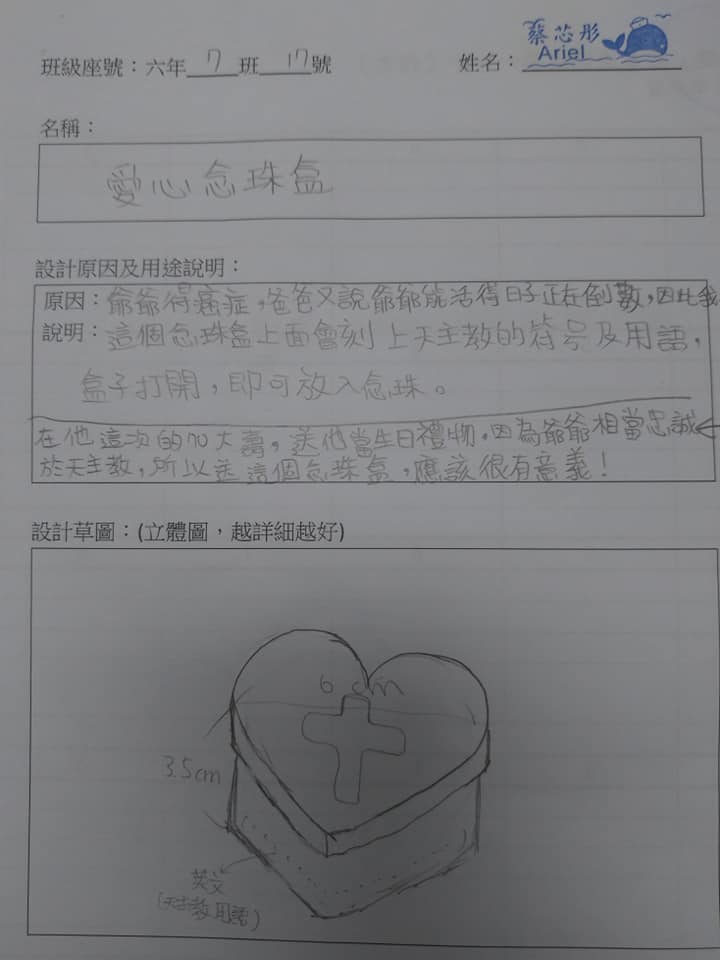 蔡芯彤
Ariel
班級座號：六年7班17號 姓名：
名稱：
愛心念珠盒
設計原因及用途說明：
原因：爺爺得癌症，爸爸又說爺爺能活得日子正在倒數，因此我
說明：這個念珠盒上面會刻上天主教的符号及用語，
盒子打開，即可放入念珠。
在他這次的70大壽，送他當生日禮物。因為爺爺相當忠誠
於天主教，所以送這個念珠盒，應該很有意義！
設計草圖：(立體圖，越詳細越好)
6cm
3.5cm
英文
(天主教用語)